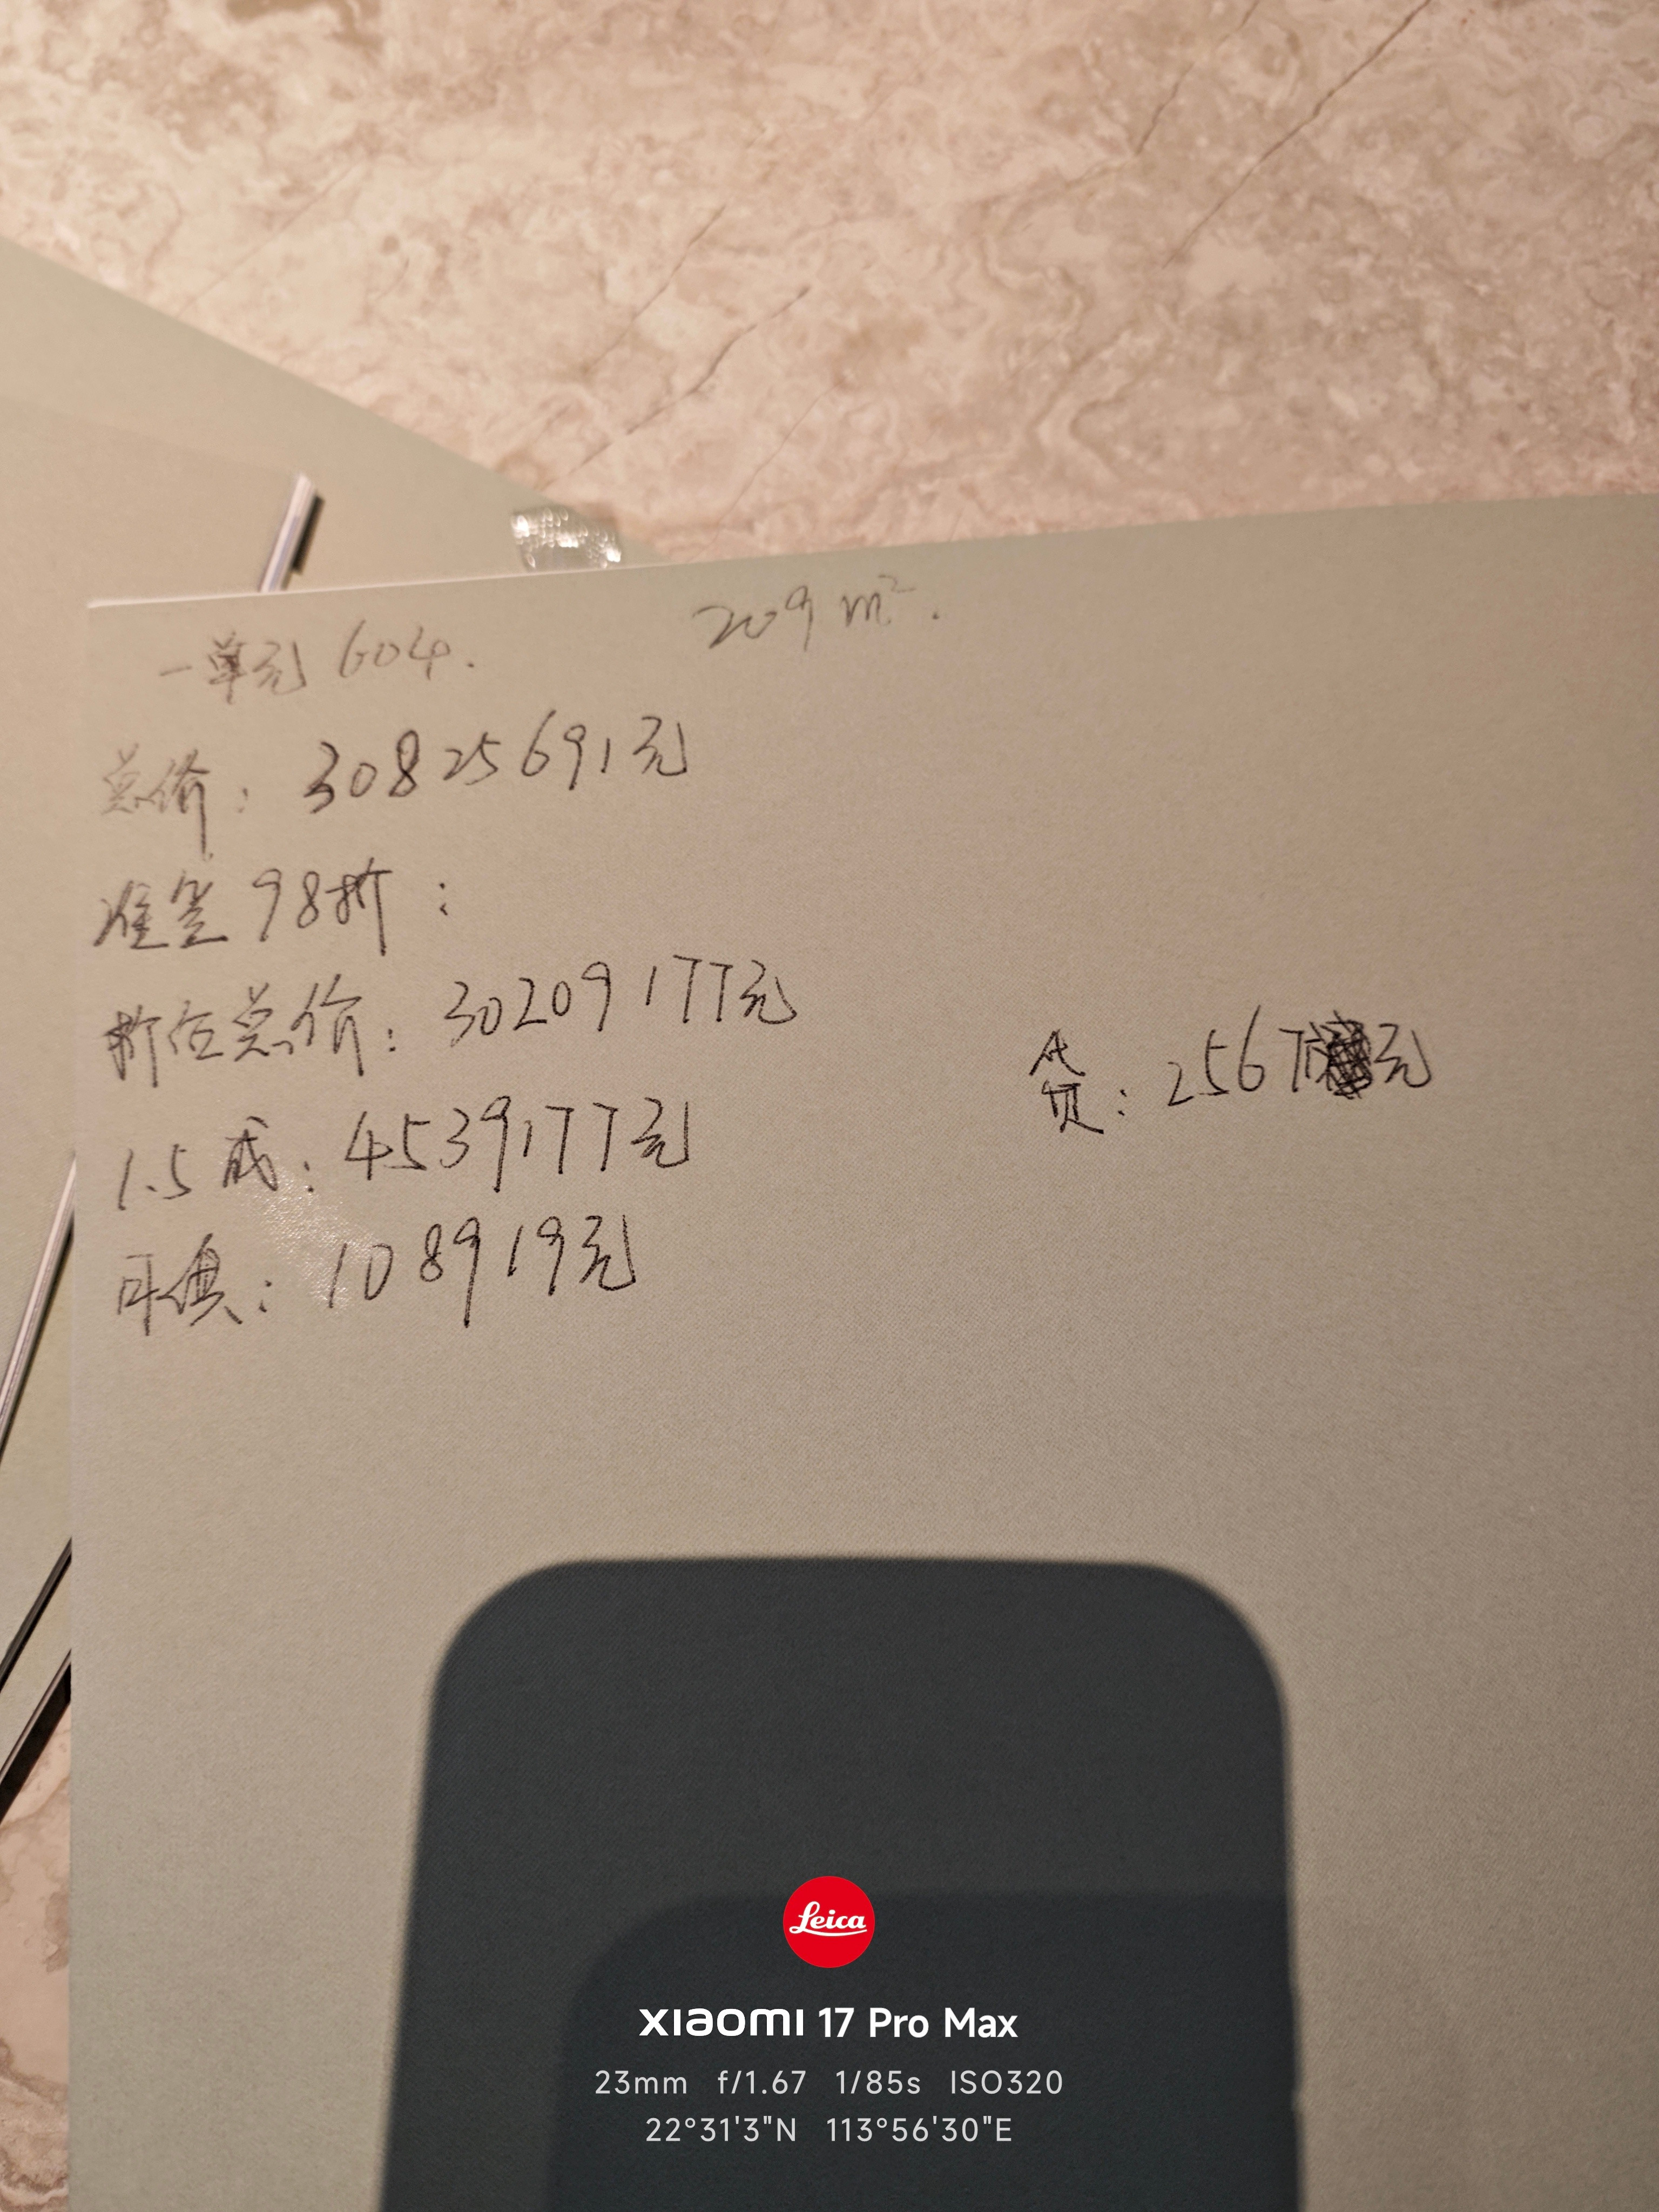 一单元 604.
209 m².
总价：30825691元
准签98折：
折后总价：30209177元
1.5成：4539177元
月供：108919元
贷：2567元
Leica
xiaomi 17 Pro Max
23mm f/1.67 1/85s ISO320
22°31'3"N 113°56'30"E